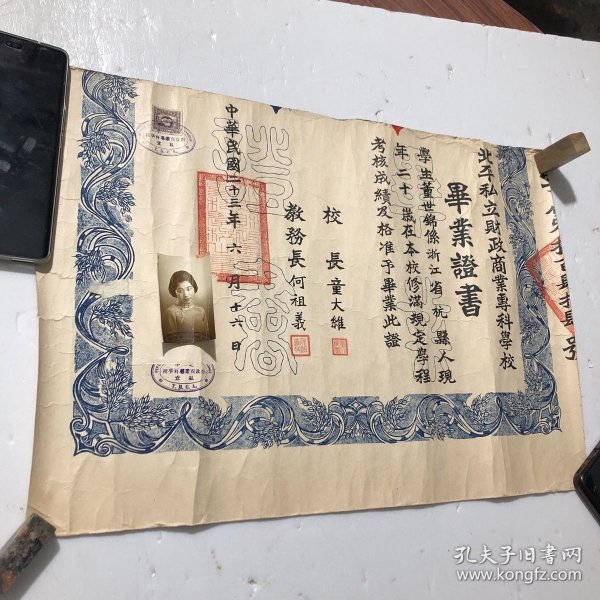 北平私立財政商業專科學校
畢業證書
學生董世錦係浙江省杭縣人現
年二十歲在本校修滿規定學程
考核成績及格准予畢業此證
校長童大維
教務長何祖義
中華民國二十三年六月十六日
孔夫子旧书网
www.kongfz.com